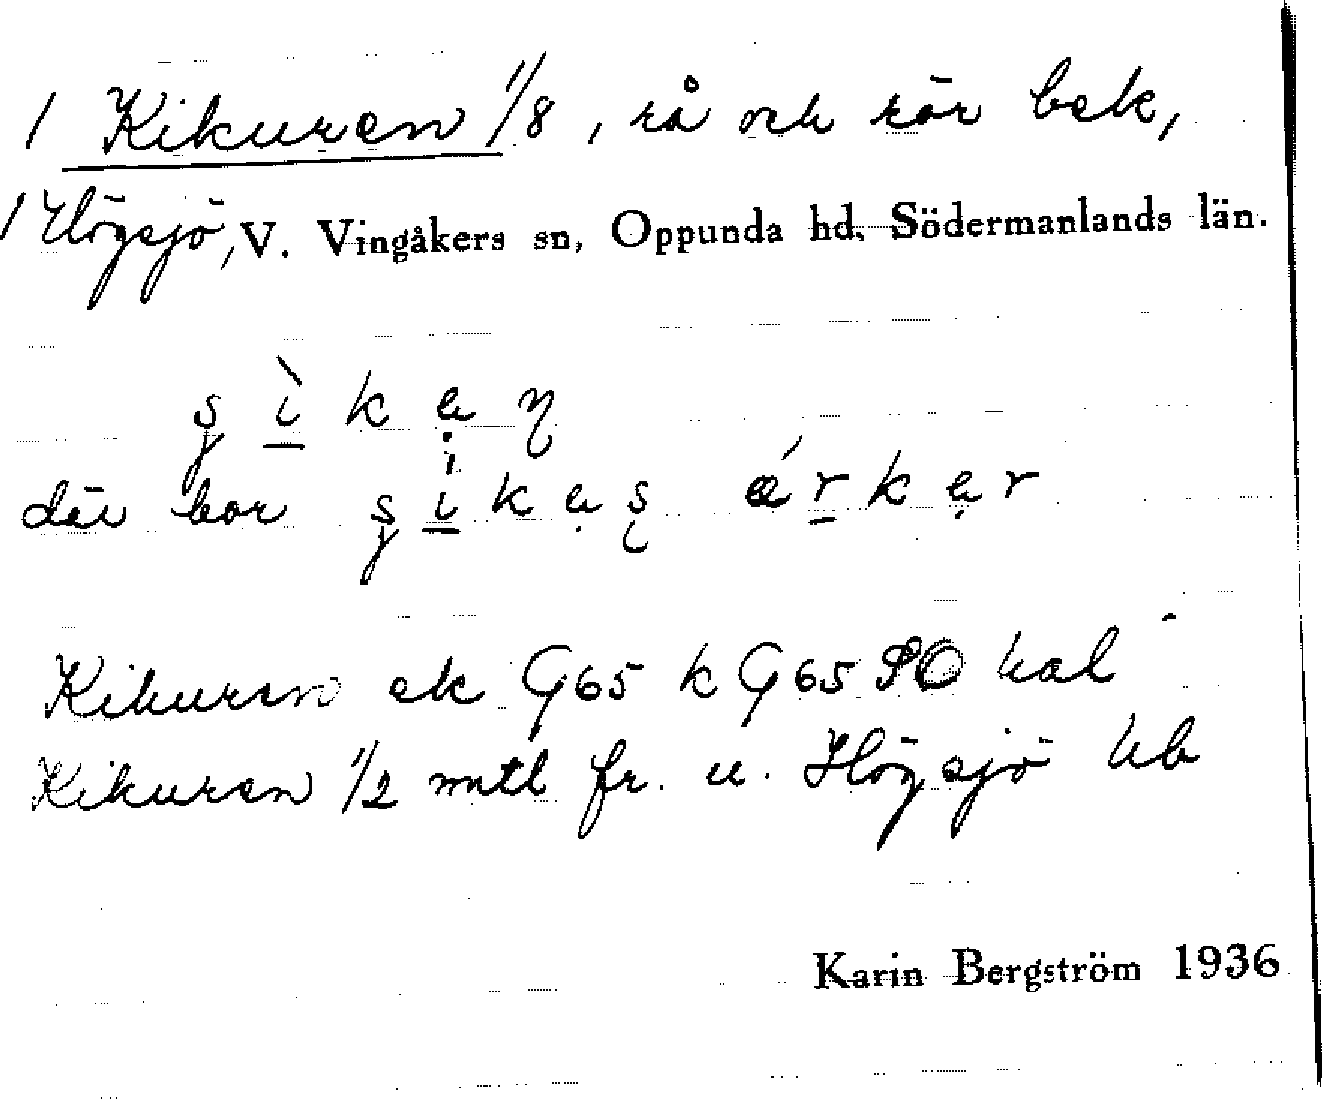 1 Kikuren 1/8, rå och rör bek,
1 Högsjö, V. Vingåkers sn, Oppunda hd. Södermanlands län.
där bor
Kikuren ek G65 k G65 SO hal
Kikuren 1/2 mtl fr. u. Högsjö hb
Karin Bergström 1936